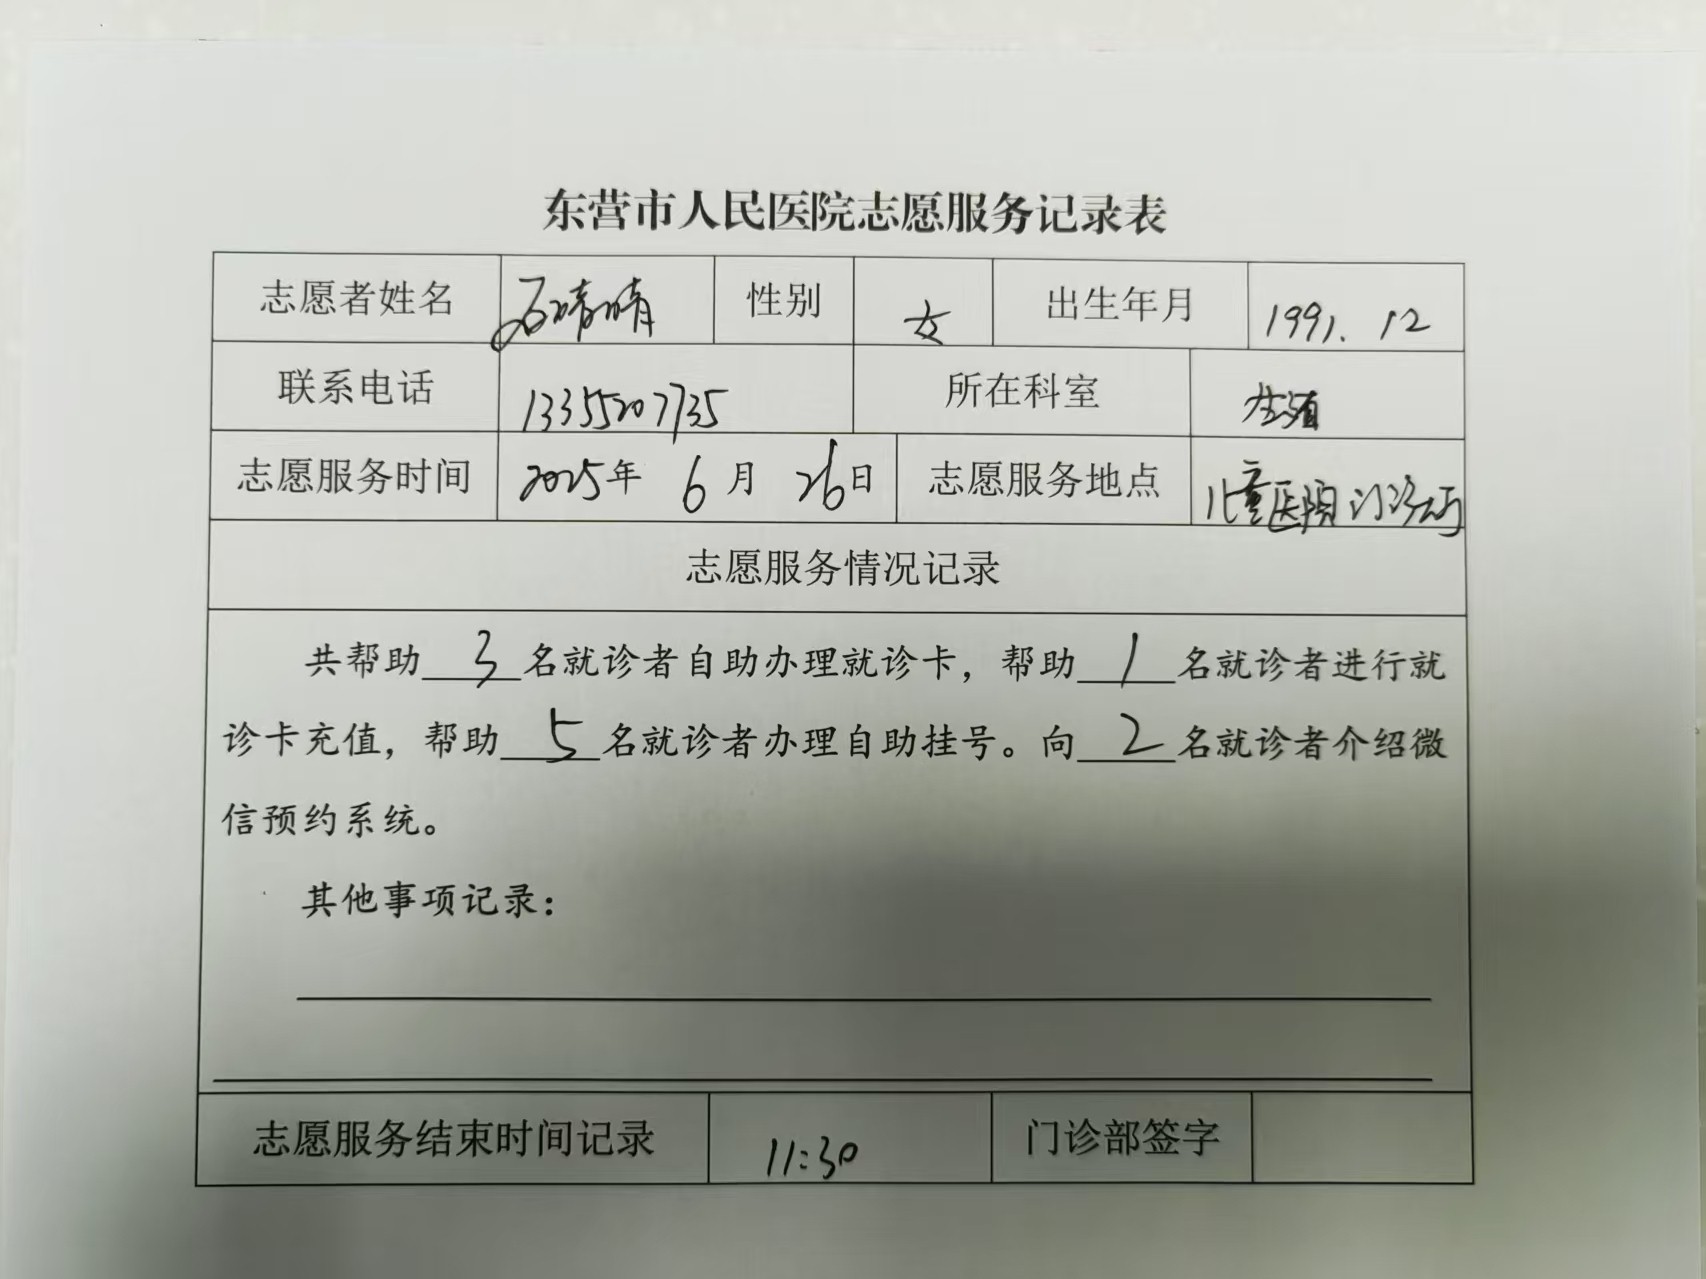 东营市人民医院志愿服务记录表
志愿者姓名 石晴晴 性别 女 出生年月 1991.12
联系电话 13355207735 所在科室
志愿服务时间 2025年 6月 26日 志愿服务地点 儿童医院门诊大厅
志愿服务情况记录
共帮助 3 名就诊者自助办理就诊卡，帮助 1 名就诊者进行就
诊卡充值，帮助 5 名就诊者办理自助挂号。向 2 名就诊者介绍微
信预约系统。
其他事项记录：
志愿服务结束时间记录 11:30 门诊部签字